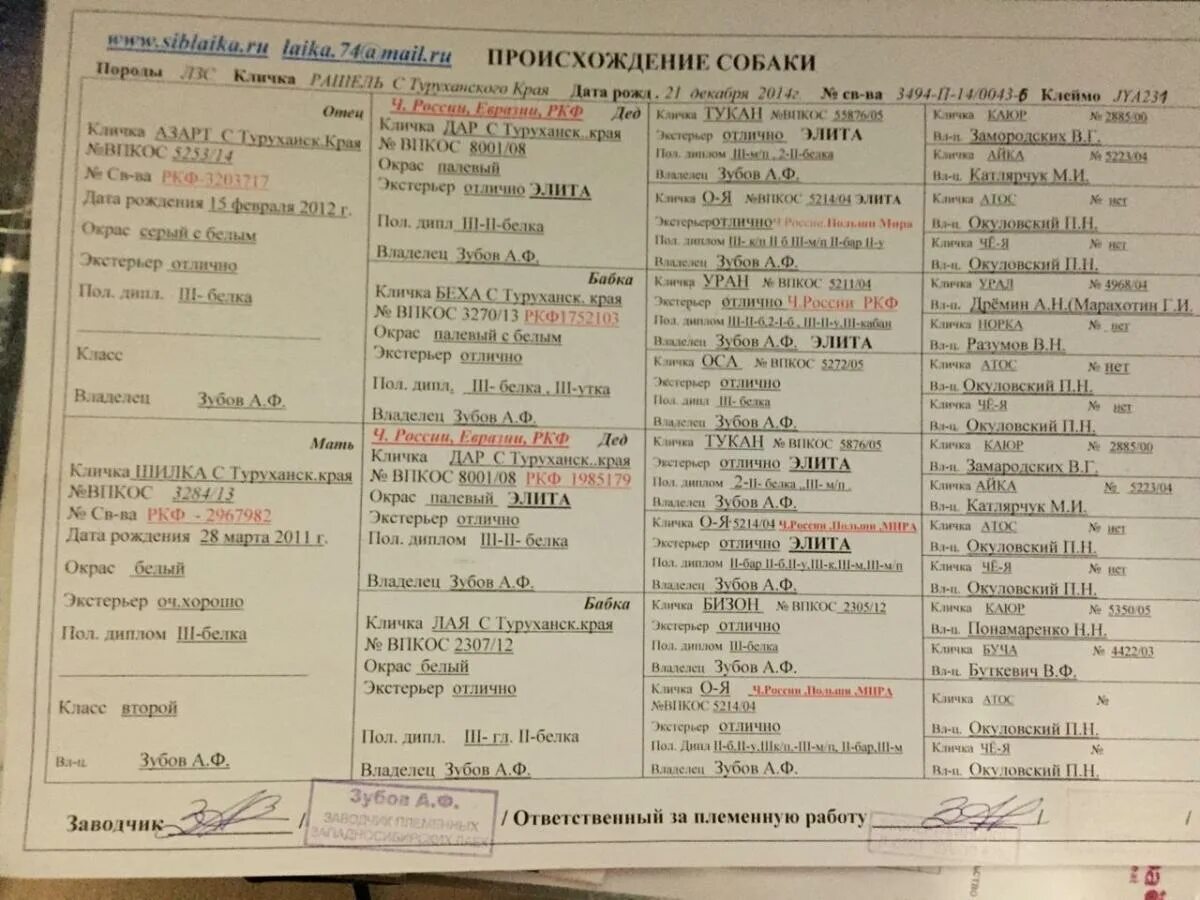 www.siblaika.ru laika.74@mail.ru ПРОИСХОЖДЕНИЕ СОБАКИ
Породы ЛЗС Кличка РАШЕЛЬ С Туруханского Края Дата рожд. 21 декабря 2014г. № св-ва 3494-П-14/0043-6 Клеймо JYA231
Отец
Кличка АЗАРТ С Туруханск.Края
№ВПКОС 5253/14
№ Св-ва РКФ-3203717
Дата рождения 15 февраля 2012 г.
Окрас серый с белым
Экстерьер отлично
Пол. дипл. III- белка
Класс
Владелец Зубов А.Ф.
Мать
Кличка ШИЛКА С Туруханск.края
№ВПКОС 3284/13
№ Св-ва РКФ - 2967982
Дата рождения 28 марта 2011 г.
Окрас белый
Экстерьер оч.хорошо
Пол. диплом III-белка
Класс второй
Вл-ц Зубов А.Ф.
Ч. России, Евразии, РКФ Дед
Кличка ДАР С Туруханск..края
№ ВПКОС 8001/08
Окрас палевый
Экстерьер отлично ЭЛИТА
Пол. дипл III-II-белка
Владелец Зубов А.Ф.
Бабка
Кличка БЕХА С Туруханск. края
№ ВПКОС 3270/13 РКФ1752103
Окрас палевый с белым
Экстерьер отлично
Пол. дипл. III- белка , III-утка
Владелец Зубов А.Ф.
Ч. России, Евразии, РКФ Дед
Кличка ДАР С Туруханск..края
№ ВПКОС 8001/08 РКФ 1985179
Окрас палевый ЭЛИТА
Экстерьер отлично
Пол. диплом III-II- белка
Владелец Зубов А.Ф.
Бабка
Кличка ЛАЯ С Туруханск.края
№ ВПКОС 2307/12
Окрас белый
Экстерьер отлично
Пол. дипл. III- гл. II-белка
Владелец Зубов А.Ф.
Кличка ТУКАН №ВПКОС 55876/05
Экстерьер отлично ЭЛИТА
Пол. диплом III-м/п , 2-II-белка
Владелец Зубов А.Ф.
Кличка О-Я №ВПКОС 5214/04 ЭЛИТА
Экстерьер отлично Ч России.Польши Мира
Пол. диплом III- к/п II б III-м/п II-бар II-у
Владелец Зубов А.Ф.
Кличка УРАН № ВПКОС 5211/04
Экстерьер отлично Ч.России РКФ
Пол. диплом III-II-б,2-I-б , III-II-у,III-кабан
Владелец Зубов А.Ф. ЭЛИТА
Кличка ОСА № ВПКОС 5272/05
Экстерьер отлично
Пол. дипл III- белка
Владелец Зубов А.Ф.
Кличка ТУКАН № ВПКОС 5876/05
Экстерьер отлично ЭЛИТА
Пол. диплом 2-II- белка ,,III- м/п .
Владелец Зубов А.Ф.
Кличка О-Я 5214/04 Ч.России.Польши.МИРА
Экстерьер отлично ЭЛИТА
Пол. диплом II-бар II-б,II-у,III-к,III-м,III-м/п
Владелец Зубов А.Ф.
Кличка БИЗОН № ВПКОС 2305/12
Экстерьер отлично
Пол. диплом III-белка
Владелец Зубов А.Ф.
Кличка О-Я Ч.России.Польши.МИРА
№ВПКОС 5214/04
Экстерьер отлично
Пол. Дипл II-б,II-у,IIIк/п,-III-м/п, II-бар,III-м
Владелец Зубов А.Ф.
Кличка КАЮР № 2885/00
Вл-ц. Замородских В.Г.
Кличка АЙКА № 5223/04
Вл-ц. Катлярчук М.И.
Кличка АТОС № нет
Вл-ц. Окуловский П.Н.
Кличка ЧЁ-Я № нет
Вл-ц. Окуловский П.Н.
Кличка УРАЛ № 4968/04
Вл-ц. Дрёмин А.Н.(Марахотин Г.И.
Кличка НОРКА № нет
Вл-ц. Разумов В.Н.
Кличка АТОС № нет
Вл-ц. Окуловский П.Н.
Кличка ЧЁ-Я № нет
Вл-ц. Окуловский П.Н.
Кличка КАЮР № 2885/00
Вл-ц. Замародских В.Г.
Кличка АЙКА № 5223/04
Вл-ц. Катлярчук М.И.
Кличка АТОС № нет
Вл-ц. Окуловский П.Н.
Кличка ЧЁ-Я № нет
Вл-ц. Окуловский П.Н.
Кличка КАЮР № 5350/05
Вл-ц. Пономаренко Н.Н.
Кличка БУЧА № 4422/03
Вл-ц. Буткевич В.Ф.
Кличка АТОС №
Вл-ц. Окуловский П.Н.
Кличка ЧЁ-Я №
Вл-ц. Окуловский П.Н.
Заводчик / Зубов А.Ф. / Ответственный за племенную работу / /
ЗАВОДЧИК ПЛЕМЕННЫХ
ЗАПАДНОСИБИРСКИХ ЛАЕК